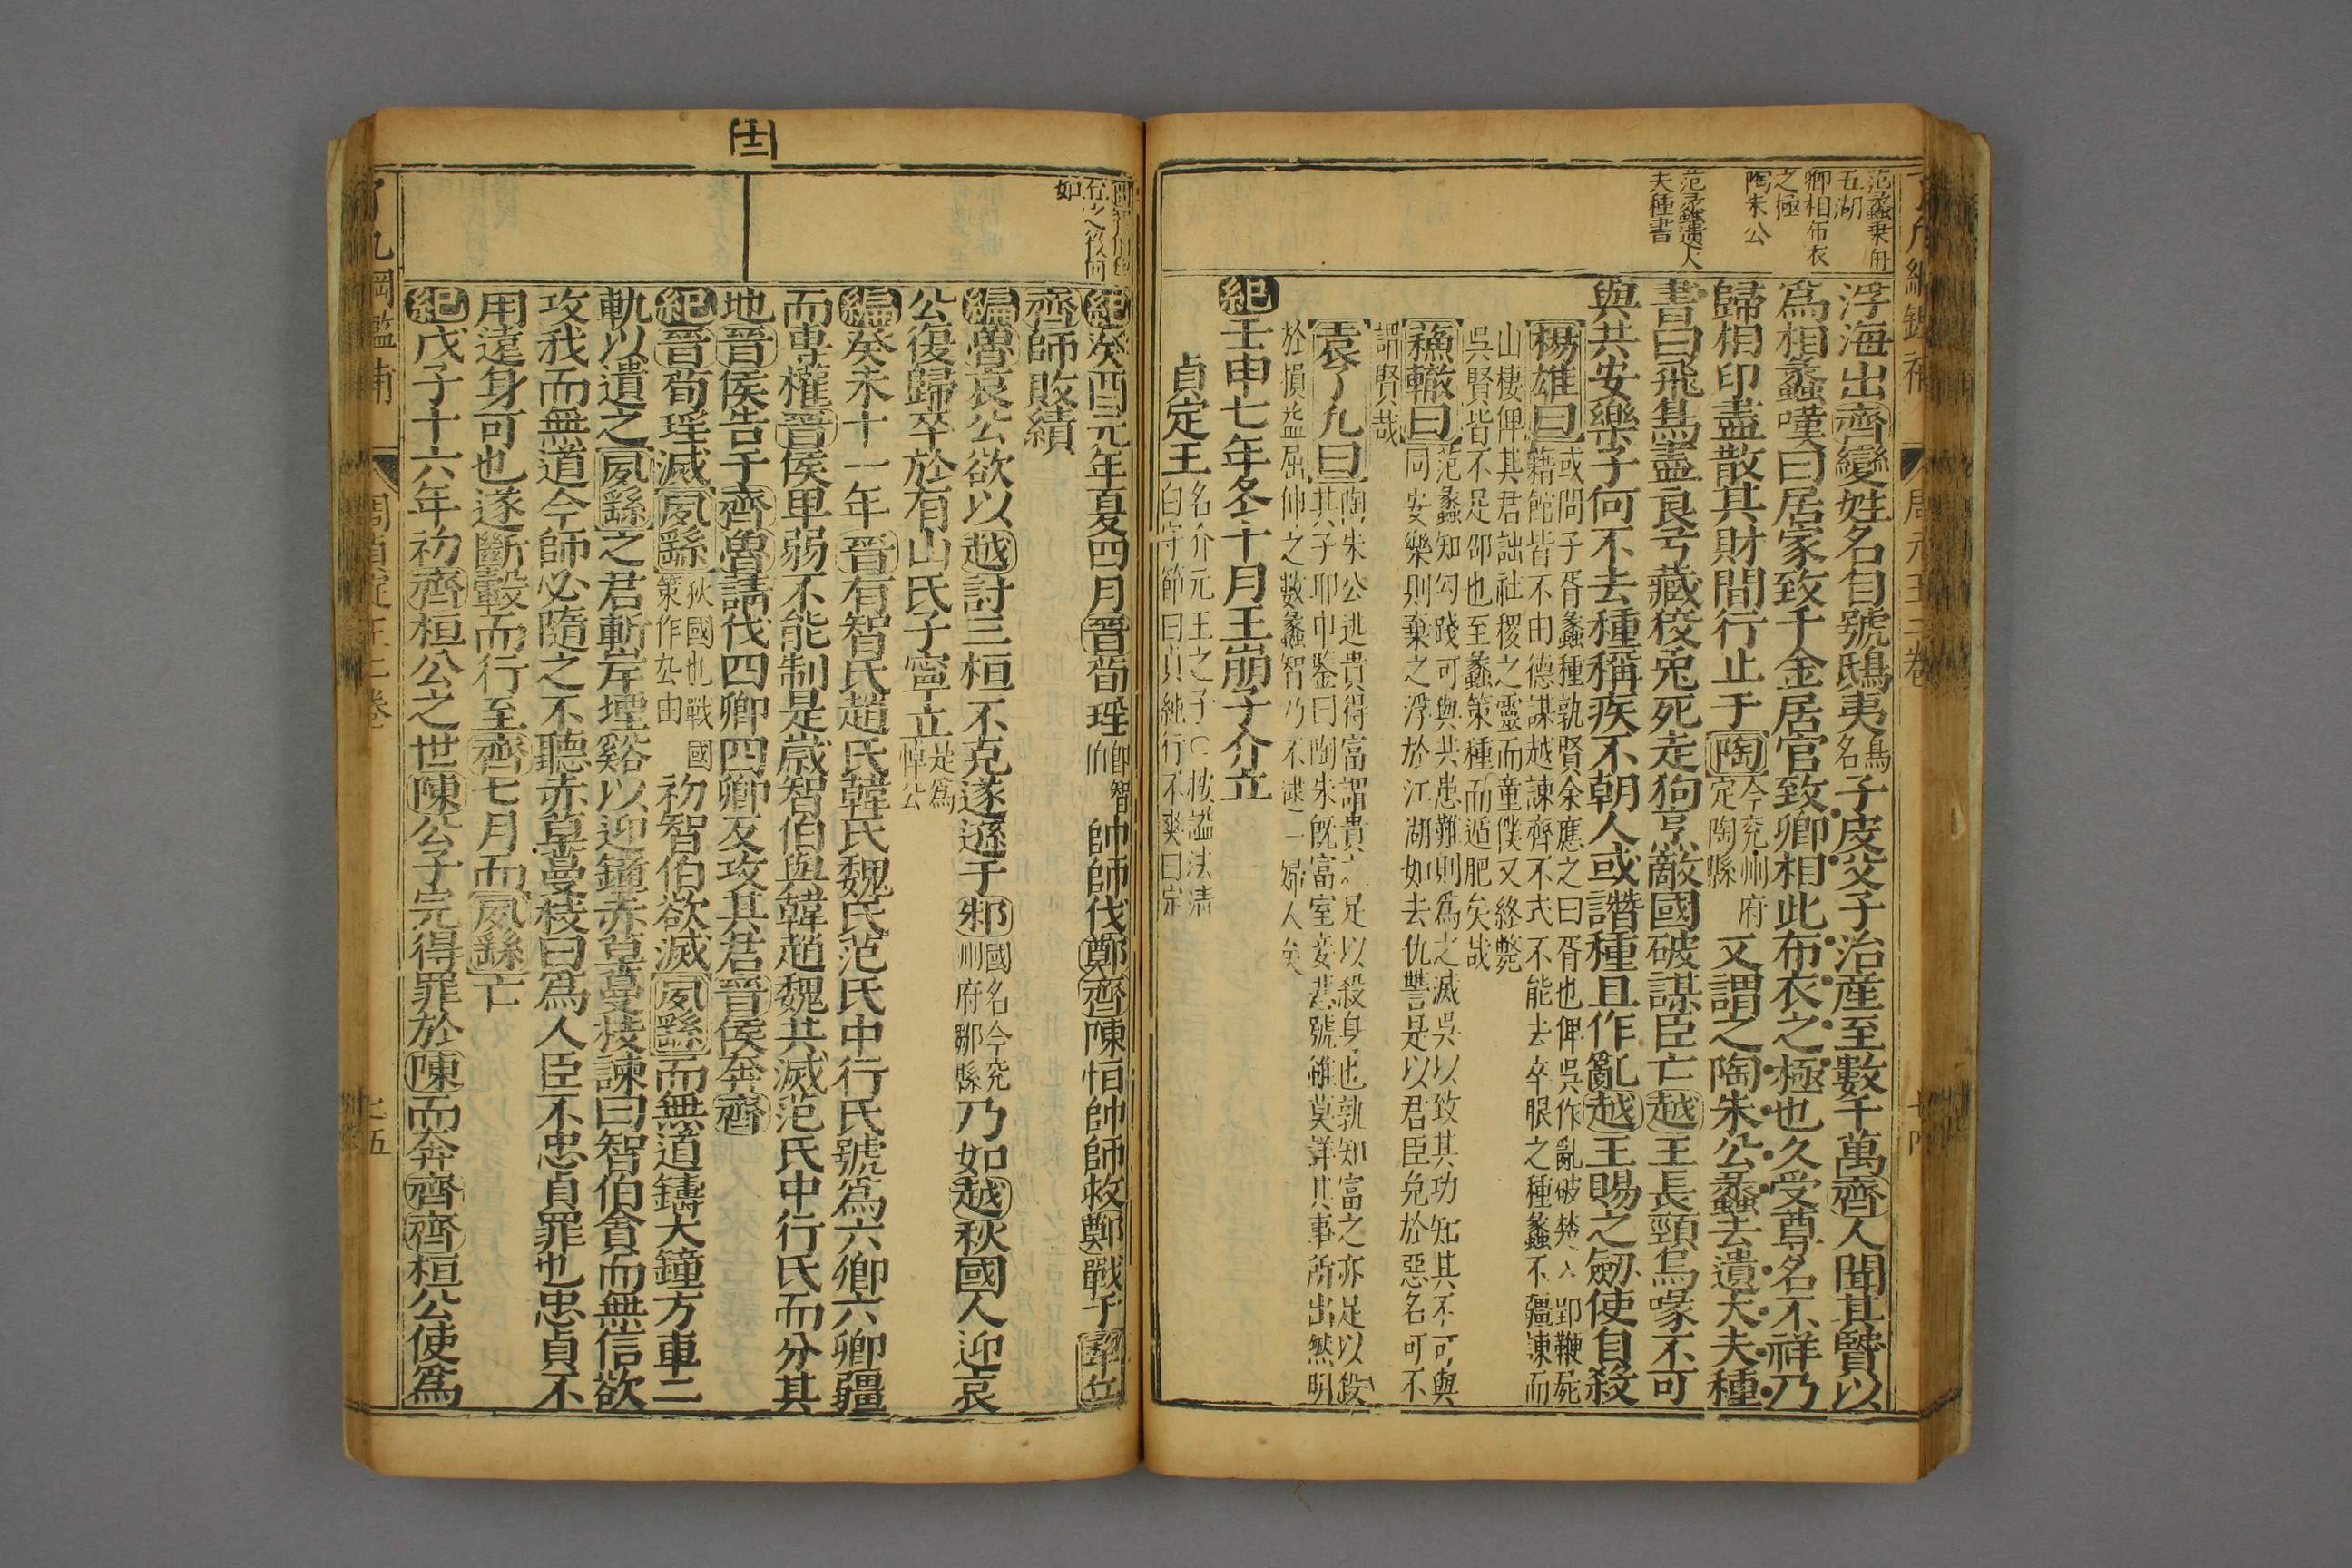 范蠡乘舟
五湖
卿相布衣
之極
陶朱公
范蠡遺大
夫種書
浮海出齊變姓名自號鴟夷名鳥子皮父子治產至數千萬齊人聞其賢以
爲相蠡嘆曰居家致千金居官致卿相此布衣之極也久受尊名不祥乃
歸相印盡散其財間行止于陶今兖州府定陶縣又謂之陶朱公蠡去遺大夫種
書曰飛鳥盡良弓藏狡兎死走狗烹敵國破謀臣亡越王長頸烏喙不可
與共安樂子何不去種稱疾不朝人或譖種且作亂越王賜之劒使自殺
楊雄曰或問子胥蠡種孰賢余應之曰胥也俾吳作亂破楚入郢鞭屍
藉館皆不由德謀越諫齊不式不能去卒眼之種蠡不疆諫而
山棲俾其君詘社稷之靈而童僕又終斃
吳賢皆不足卲也至蠡策種而遁肥矣哉
蘓轍曰范蠡知勾踐可與共患難則爲之滅吳以致其功知其不可與
同安樂則棄之浮於江湖如去仇讐是以君臣免於惡名可不
謂賢哉
袁了凡曰陶朱公逃貴得富謂貴之足以殺身也孰知富之亦足以殺
其子耶巾鑒曰陶朱旣富室妾悲號雖莫詳其事所出然明
於損益屈伸之數蠡智乃不逮一婦人矣
紀壬申七年冬十月王崩子介立
貞定王名介元王之子○按謚法清
白守節曰貞純行不爽曰定
了凡綱鑑補
周元王二卷
十四
十二
智伯
在此之後何
如
紀癸酉元年夏四月晉荀瑶卽智伯帥師伐鄭齊陳恒帥師救鄭戰于犂丘
齊師敗績
編魯哀公欲以越討三桓不克遂遜于邾國名今兖州府鄒縣乃如越秋國人迎哀
公復歸卒於有山氏子寧立是爲悼公
編癸未十一年晉有智氏趙氏韓氏魏氏范氏中行氏號爲六卿六卿疆
而專權晉侯卑弱不能制是歲智伯與韓趙魏共滅范氏中行氏而分其
地晉侯告于齊魯請伐四卿四卿反攻其君晉侯奔齊
紀晉荀瑶滅夙繇狄國也戰國策作厹由初智伯欲滅夙繇而無道鑄大鐘方車二
軌以遺之夙繇之君斬岸堙谿以迎鐘赤草蔓枝諫曰智伯貪而無信欲
攻我而無道今師必隨之不聽赤草蔓枝曰爲人臣不忠貞罪也忠貞不
用遠身可也遂斷轂而行至齊七月而夙繇亡
紀戊子十六年初齊桓公之世陳公子完得罪於陳而奔齊齊桓公使爲
了凡綱鑑補
周貞定王二卷
十五